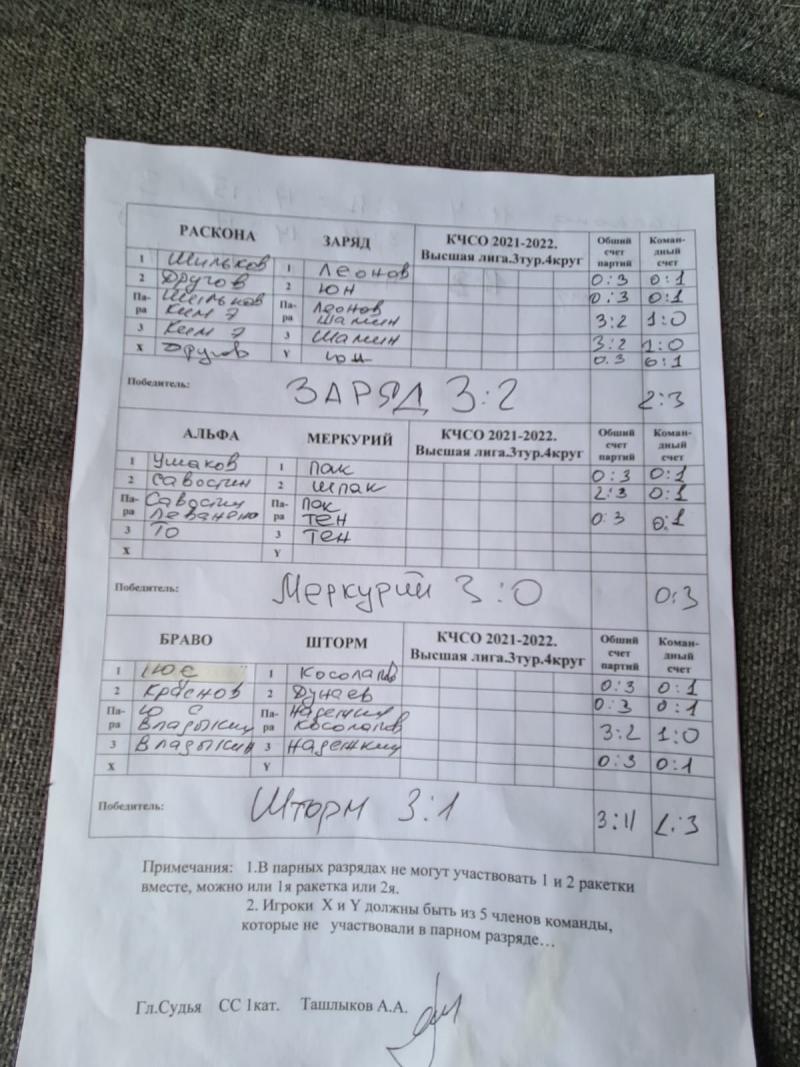 РАСКОНА ЗАРЯД КЧСО 2021-2022. Высшая лига.3тур.4круг Обший счет партий Коман-дный счет
1 Шильков 1 Леонов 0:3 0:1
2 Другов 2 Юн 0:3 0:1
Па-ра Шильков Ким Э Па-ра Леонов Шамин 3:2 1:0
3 Ким Э 3 Шамин 3:2 1:0
X Другов Y Юн 0:3 0:1
Победитель: ЗАРЯД 3:2 2:3
АЛЬФА МЕРКУРИЙ КЧСО 2021-2022. Высшая лига.3тур.4круг Обший счет партий Коман-дный счет
1 Ушаков 1 Пак 0:3 0:1
2 Савостин 2 Шпак 2:3 0:1
Па-ра Савостин Па-ра Пак Тен 0:3 0:1
3 ТО 3 Тен
X Y
Победитель: Меркурий 3:0 0:3
БРАВО ШТОРМ КЧСО 2021-2022. Высшая лига.3тур.4круг Обший счет партий Коман-дный счет
1 Ю С 1 Косолапов 0:3 0:1
2 Краснов 2 Дунаев 0:3 0:1
Па-ра Ю С Владыкин Па-ра Надежкин Косолапов 3:2 1:0
3 Владыкин 3 Надежкин 0:3 0:1
X Y
Победитель: Шторм 3:1 3:11 1:3
Примечания: 1.В парных разрядах не могут участвовать 1 и 2 ракетки
вместе, можно или 1я ракетка или 2я.
2. Игроки X и Y должны быть из 5 членов команды,
которые не участвовали в парном разряде…
Гл.Судья СС 1кат. Ташлыков А.А.